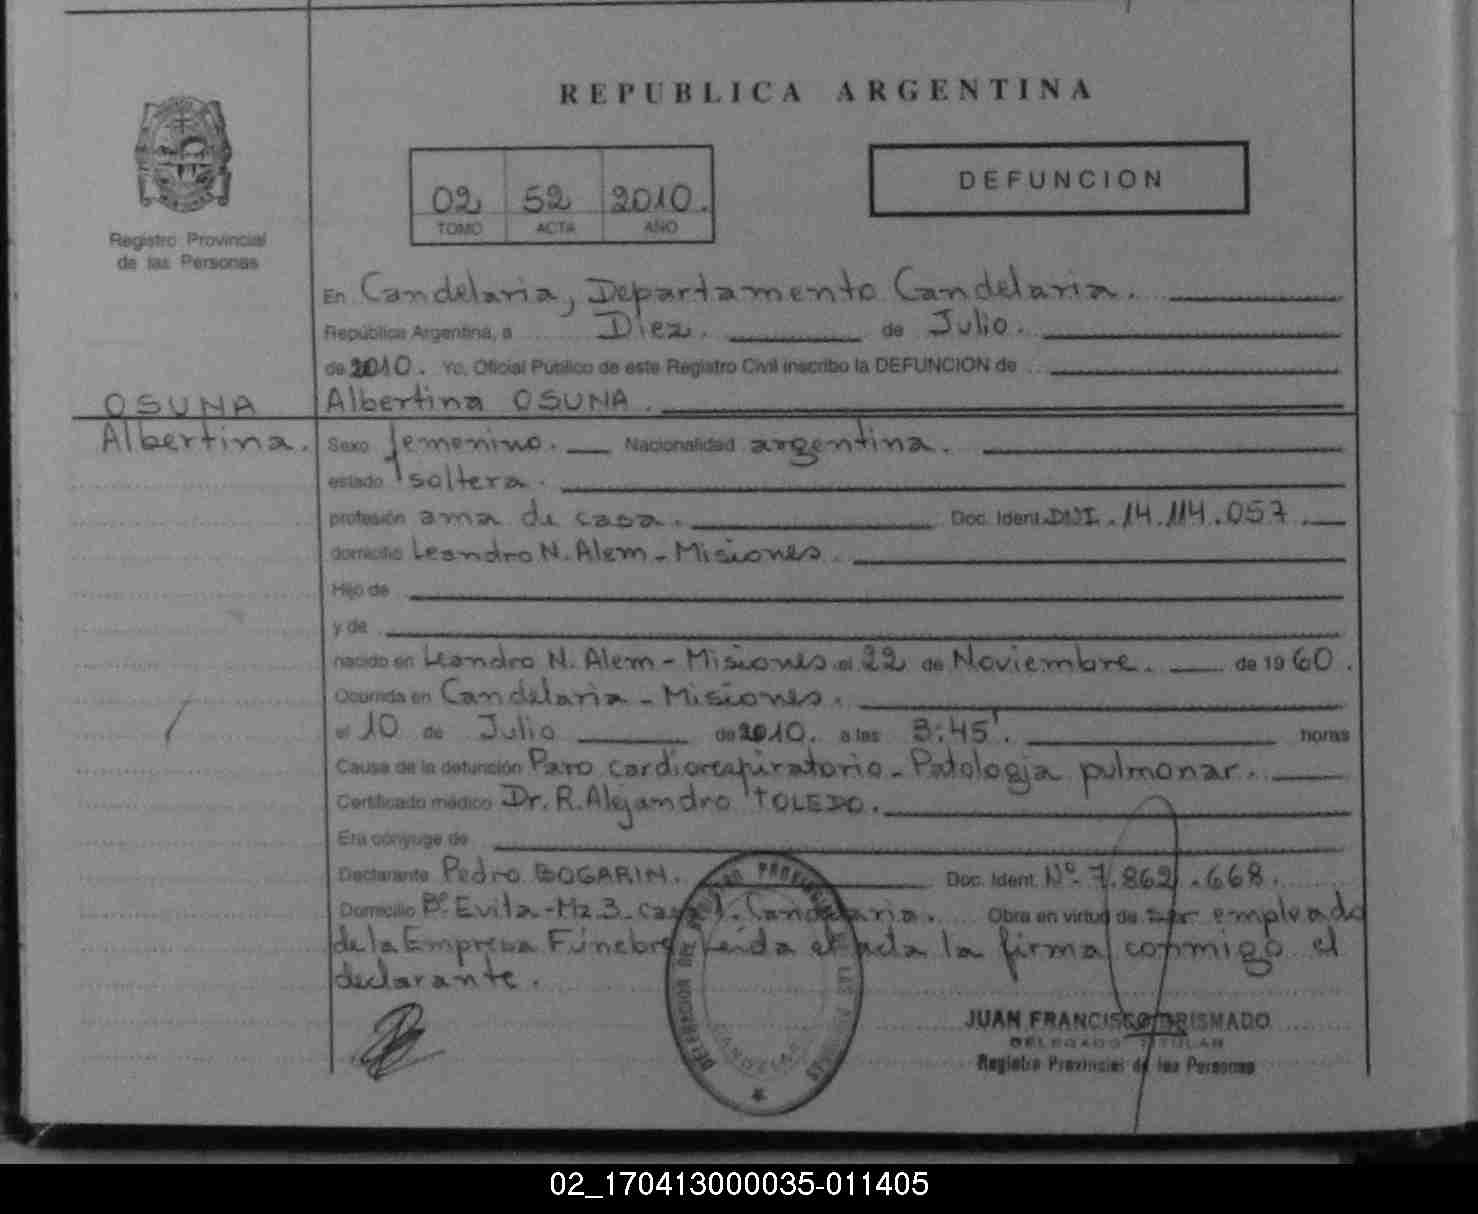 REPUBLICA ARGENTINA
02 52 2010.
TOMO ACTA AÑO
DEFUNCION
Registro Provincial
de las Personas
En Candelaria, Departamento Candelaria.
República Argentina, a Diez. de Julio.
de 2010. Yo, Oficial Público de este Registro Civil inscribo la DEFUNCION de
OSUNA
Albertina.
Albertina OSUNA.
Sexo femenino. Nacionalidad argentina.
estado soltera.
profesión ama de casa. Doc. Ident. DNI. 14.114.057.
domicilio Leandro N. Alem - Misiones.
Hijo de
y de
nacido en Leandro N. Alem - Misiones el 22 de Noviembre. de 1960.
Ocurrida en Candelaria - Misiones.
el 10 de Julio de 2010. a las 3:45'. horas
Causa de la defunción Paro cardiorespiratorio - Patologia pulmonar.
Certificado médico Dr. R. Alejandro TOLEDO.
Era cónyuge de
Declarante Pedro BOGARIN. Doc. Ident. Nº. 7.862.668.
Domicilio Bº Evita - Mz 3 - casa 1. Candelaria. Obra en virtud de ser empleado
de la Empresa Fúnebre Leida el acta la firma conmigo el
declarante.
JUAN FRANCISCO
DELEGADO TITULAR
Registro Provincial de las Personas
DELEGACION DEL REGISTRO PROVINCIAL DE LAS PERSONAS
CANDELARIA
02_170413000035-011405